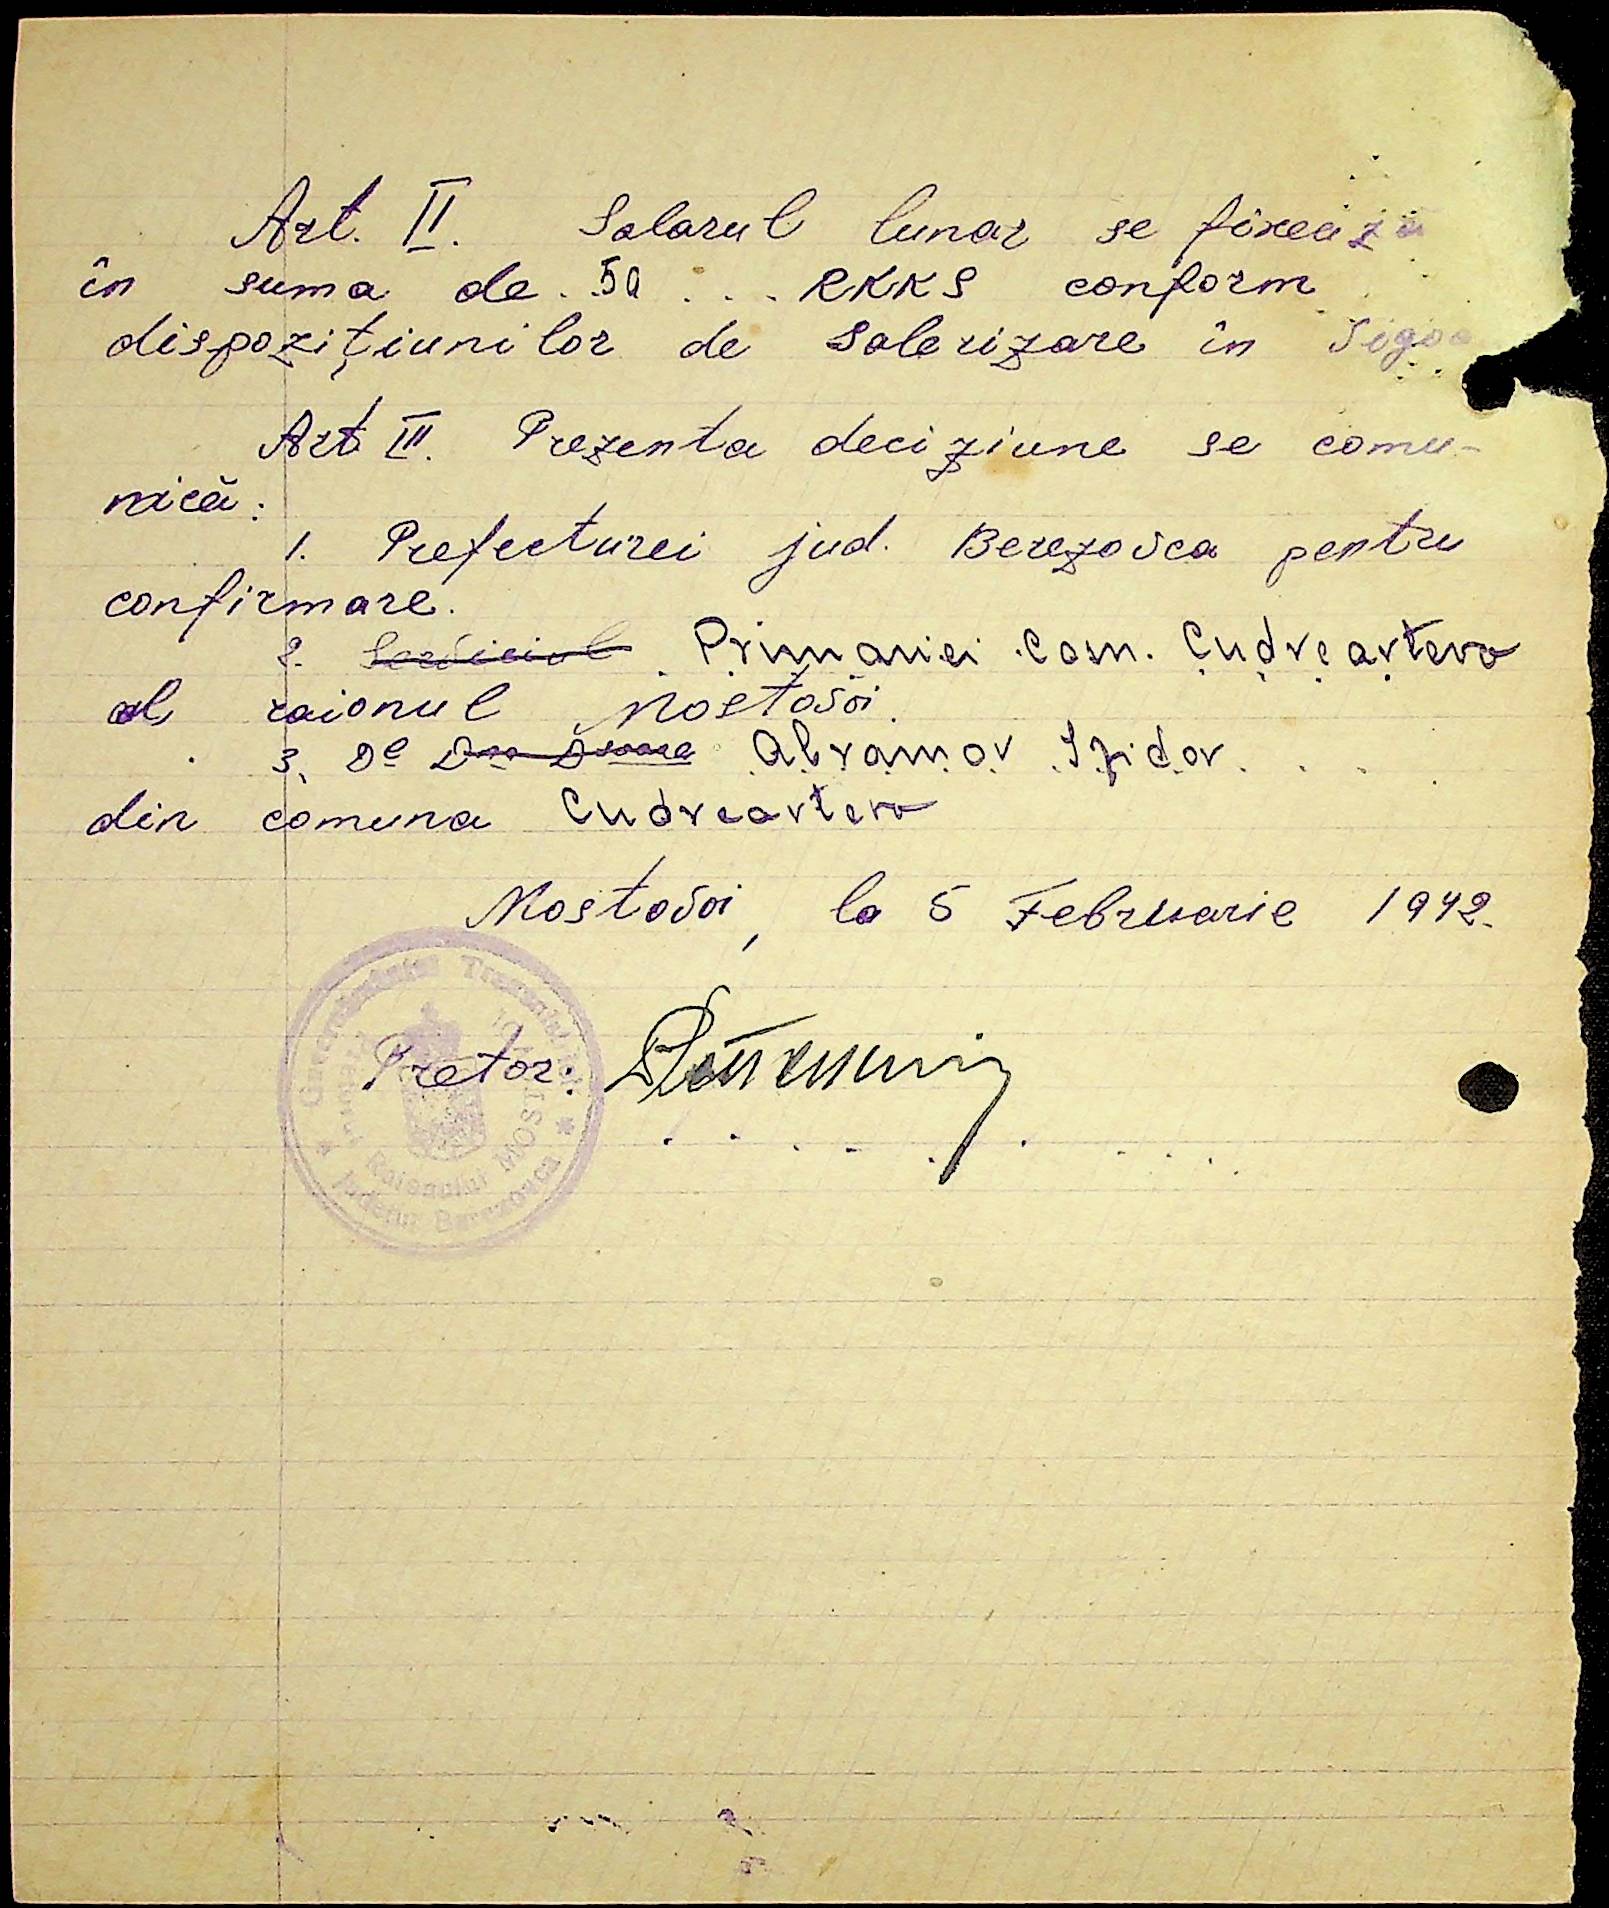 Art. II. Salarul lunar se fixează
în suma de . 50 . . . RKKS conform
dispozițiunilor de salerizare în vigoa
Art III. Prezenta deciziune se comu-
nică:
1. Prefecturei jud. Berezovca pentru
confirmare.
2. Serviciul Primariei Com. Cudreavtevo
al raionul Mostovoi.
3. Dl Dna Dșoara Abramov Izidor
din comuna Cudreavtevo
Mostovoi, la 5 Februarie 1942.
Pretor:
Guvernământul Transnistriei
Pretura Raionului MOSTOVOI
Județul Berezovca